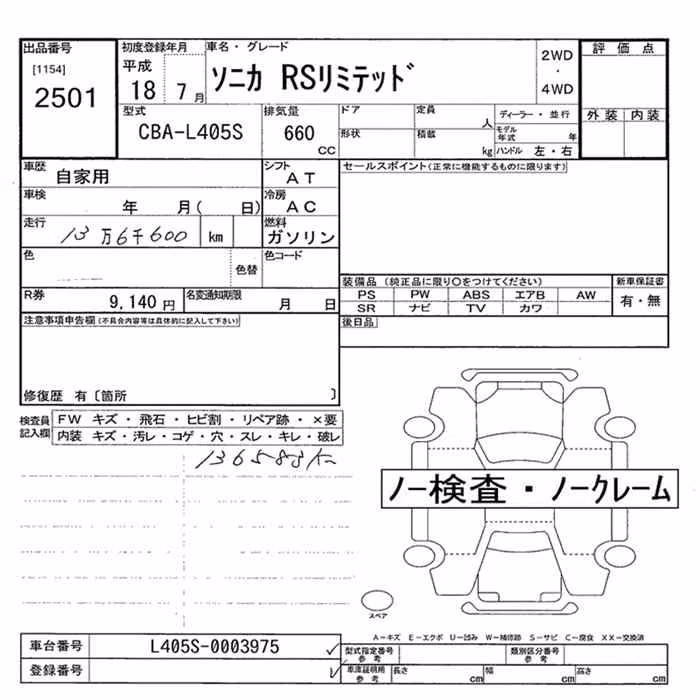 出品番号
[1154]
2501
初度登録年月
平成
18 7月
車名・グレード
ソニカ RSリミテッド
2WD
・
4WD
評価点
外装 内装
型式
CBA-L405S
排気量
660
CC
ドア
定員
人
形状
積載
kg
ディーラー・並行
モデル年式 年
ハンドル 左・右
車歴
自家用
シフト
AT
車検
年 月( 日)
冷房
AC
走行
13万6千600 km
燃料
ガソリン
色
色替
色コード
R券
9,140円
名変通知期限
月 日
セールスポイント(正常に機能するものに限ります)
装備品 (純正品に限り〇をつけてください)
PS PW ABS エアB AW
SR ナビ TV カワ
新車保証書
有・無
後日品
注意事項申告欄(不具合内容等は具体的に記入して下さい)
修復歴 有〔箇所 〕
検査員
記入欄
FW キズ・飛石・ヒビ割・リペア跡・×要
内装 キズ・汚レ・コゲ・穴・スレ・キレ・破レ
136583km
ノー検査・ノークレーム
スペア
A-キズ E-エクボ U-凹み W-補修跡 S-サビ C-腐食 XX-交換済
車台番号
L405S-0003975
登録番号
型式指定番号
参考
類別区分番号
参考
車庫証明用
参考
長さ cm
幅 cm
高さ cm